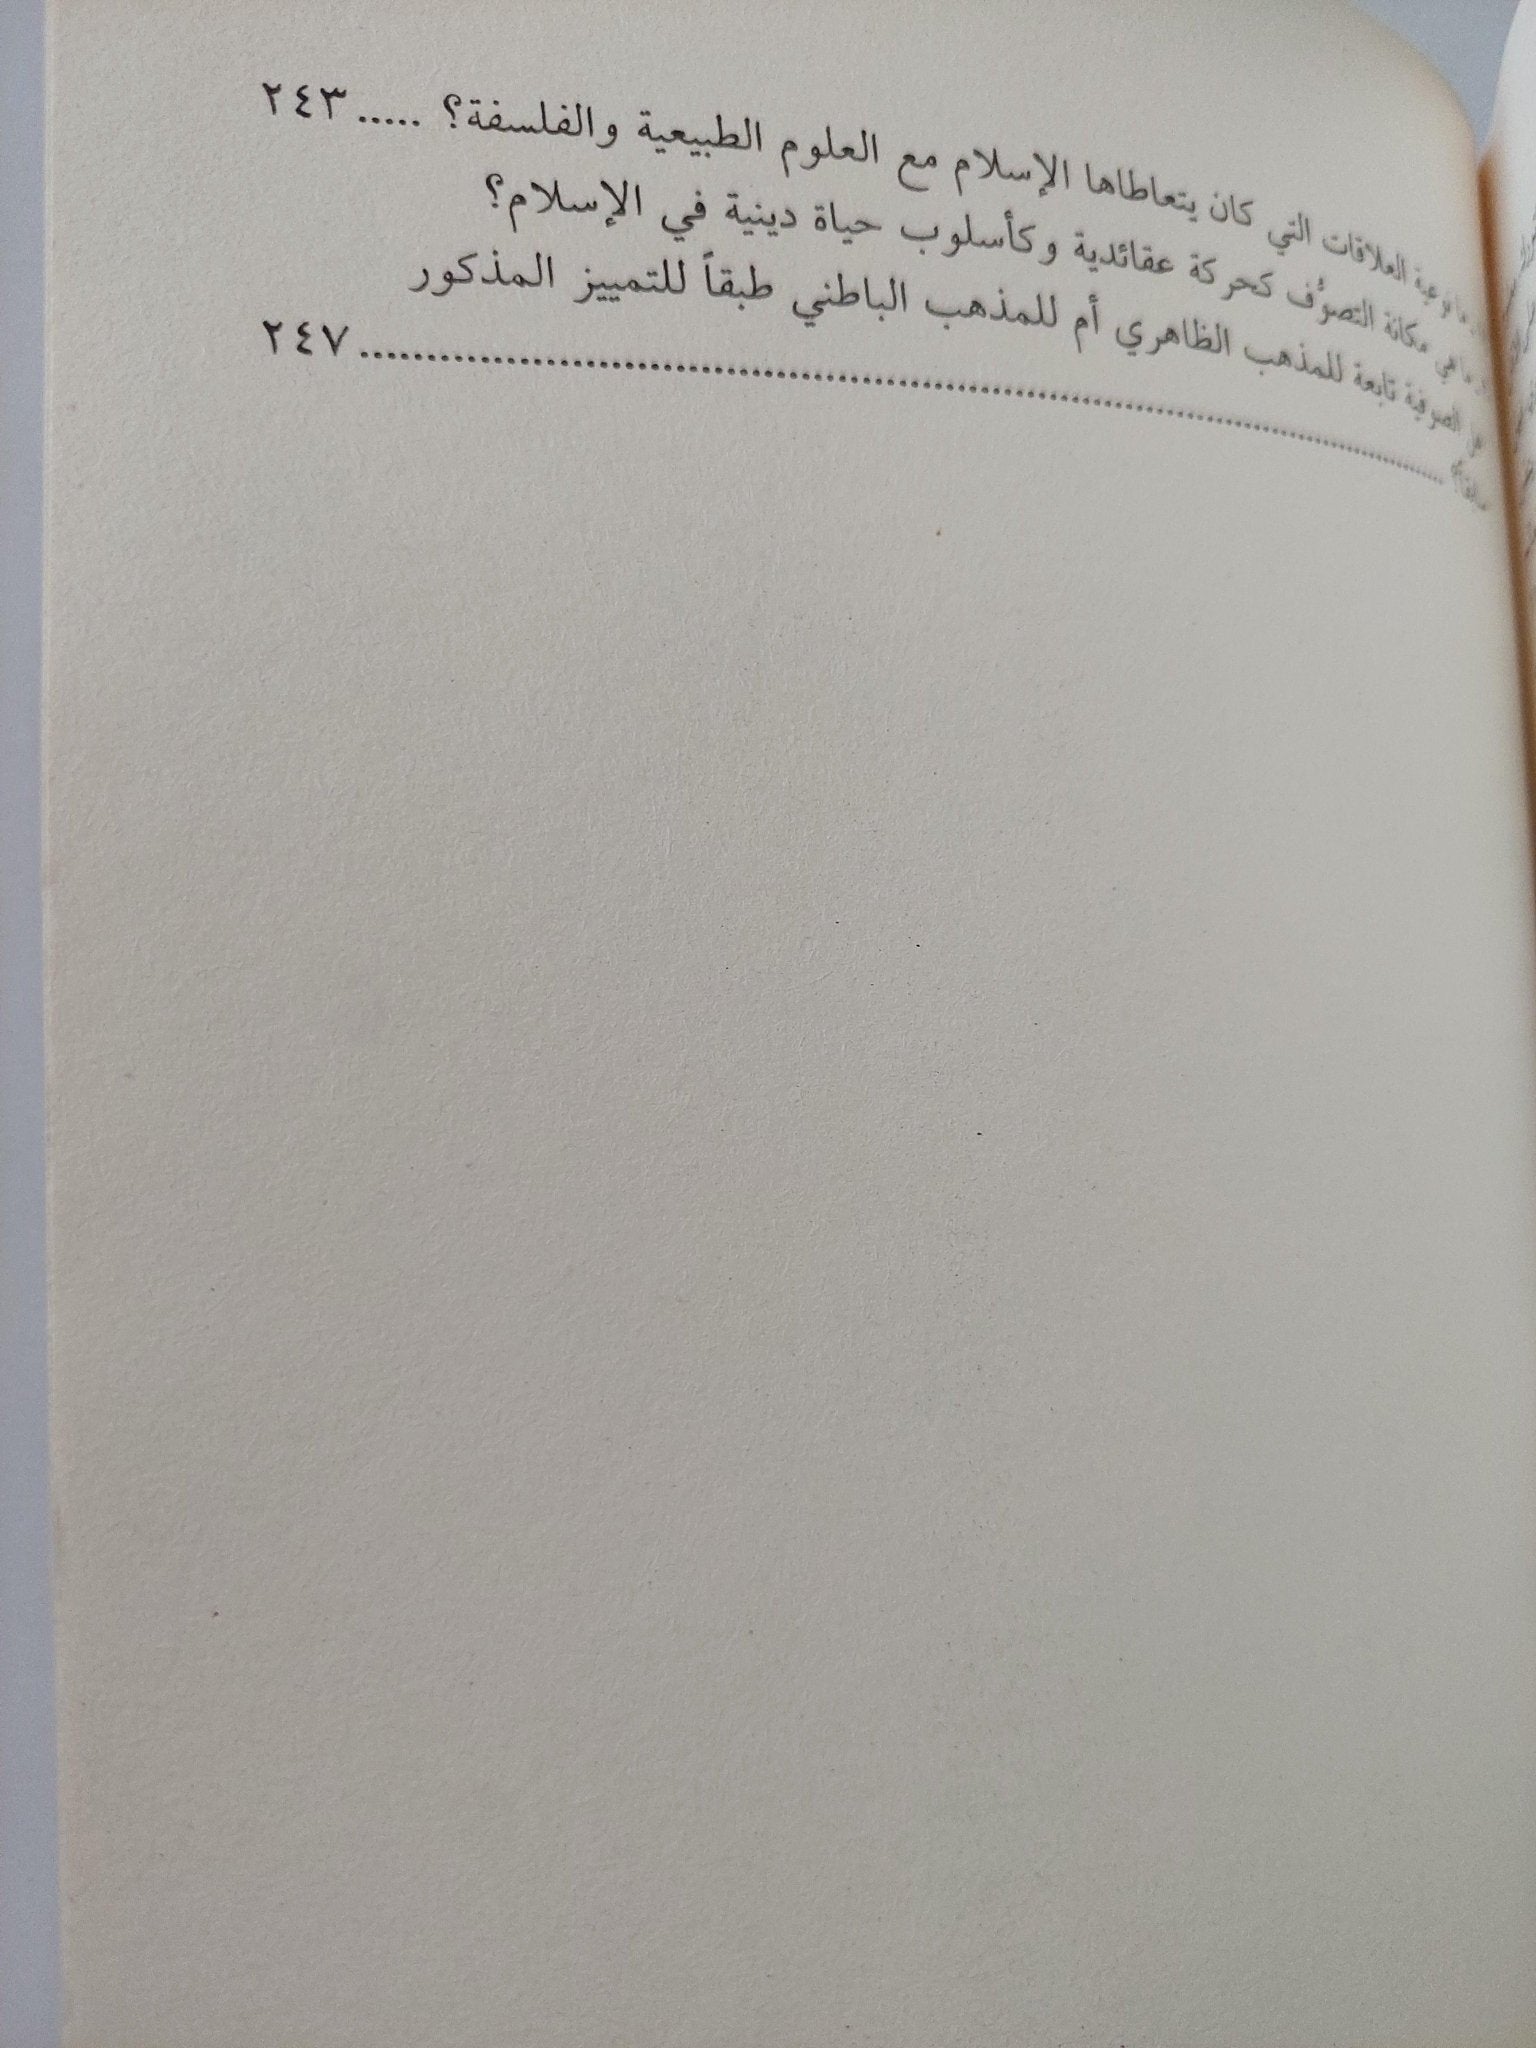 ما نوعية العلاقات التي كان يتعاطاها الإسلام مع العلوم الطبيعية والفلسفة؟ ..... ٢٤٣
ما هي مكانة التصوُّف كحركة عقائدية وكأسلوب حياة دينية في الإسلام؟
هل الصوفية تابعة للمذهب الظاهري أم للمذهب الباطني طبقاً للتمييز المذكور
سابقاً؟ ........................................................................ ٢٤٧